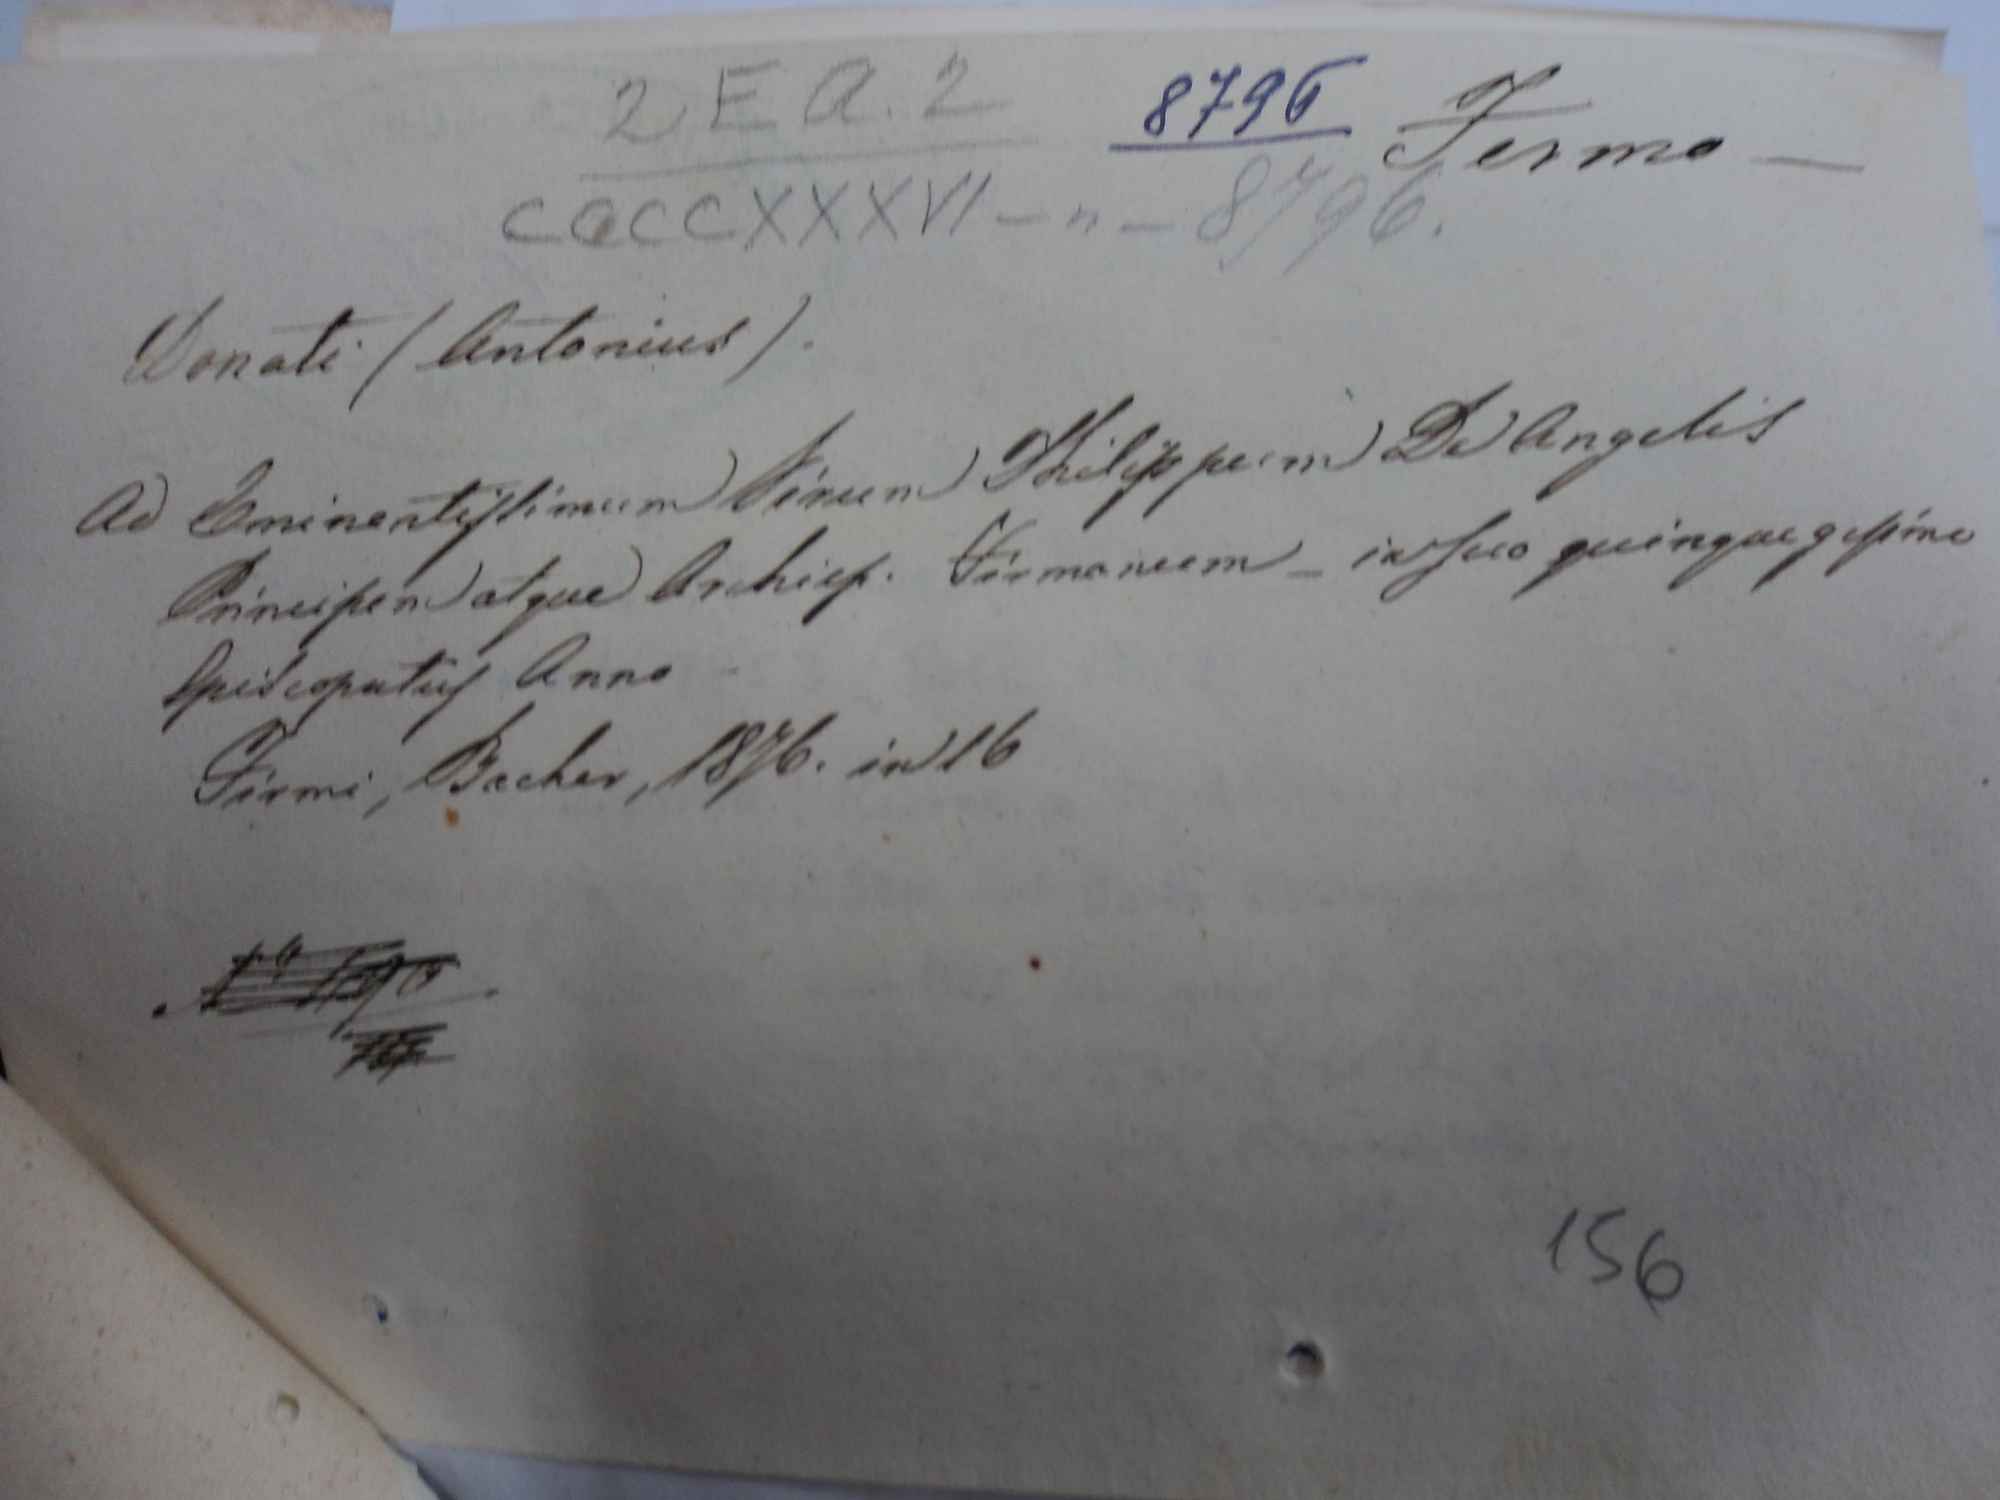 2 E A. 2
8796 Fermo —
CCCCXXXVI — n — 8796.
Donati (Antonius).
Ad Eminentissimum Virum Philippum De Angelis
Principem atque Archiep. Firmanum — in suo quinquegesimo
Episcopatus Anno
Firmi, Bacher, 1876. in 16
156